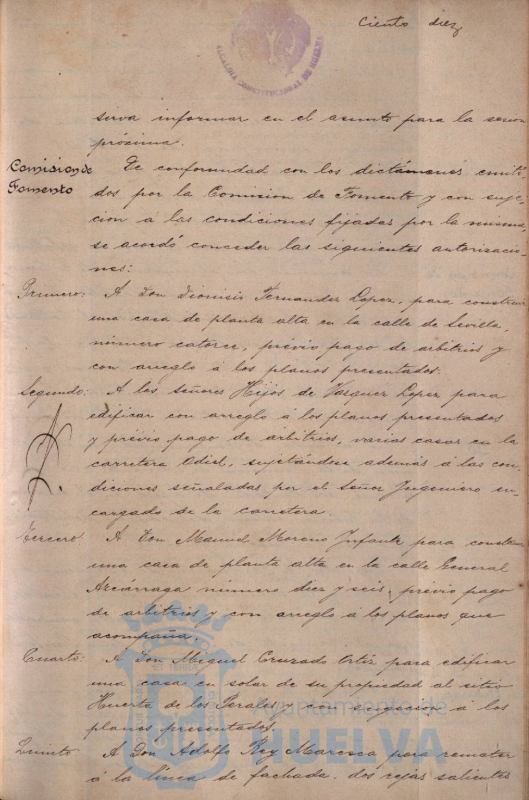 Ciento diez
ALCALDIA CONSTITUCIONAL DE HUELVA
sirva informar en el asunto para la sesion
próxima.
Comision de
Fomento
De conformidad con los dictámenes emiti-
dos por la Comision de Fomento y con suje-
cion á las condiciones fijadas por la misma,
se acordó conceder las siguientes autorizacio-
nes:
Primero: A Don Dionisio Fernandez Lopez, para construir
una casa de planta alta en la calle de Sevilla,
número catorce, prévio pago de arbitrios y
con arreglo á los planos presentados.
Segundo: A los señores Hijos de Vazquez Lopez para
edificar con arreglo á los planos presentados
y prévio pago de arbitrios, varias casas en la
carretera Odiel, sujetándose además á las con-
diciones señaladas por el Señor Ingeniero en-
cargado de la carretera.
Tercero: A Don Manuel Moreno Infante para construir
una casa de planta alta en la calle General
Azcárraga número diez y seis, prévio pago
de arbitrios y con arreglo á los planos que
acompaña.
Cuarto: A Don Miguel Cruzado Ortiz para edificar
una casa en solar de su propiedad al sitio
Huerta de los Perales y con sujecion á los
planos presentados.
Quinto: A Don Adolfo Rey Maresca para rematar
á la línea de fachada dos rejas salientes
Ayuntamiento de
HUELVA